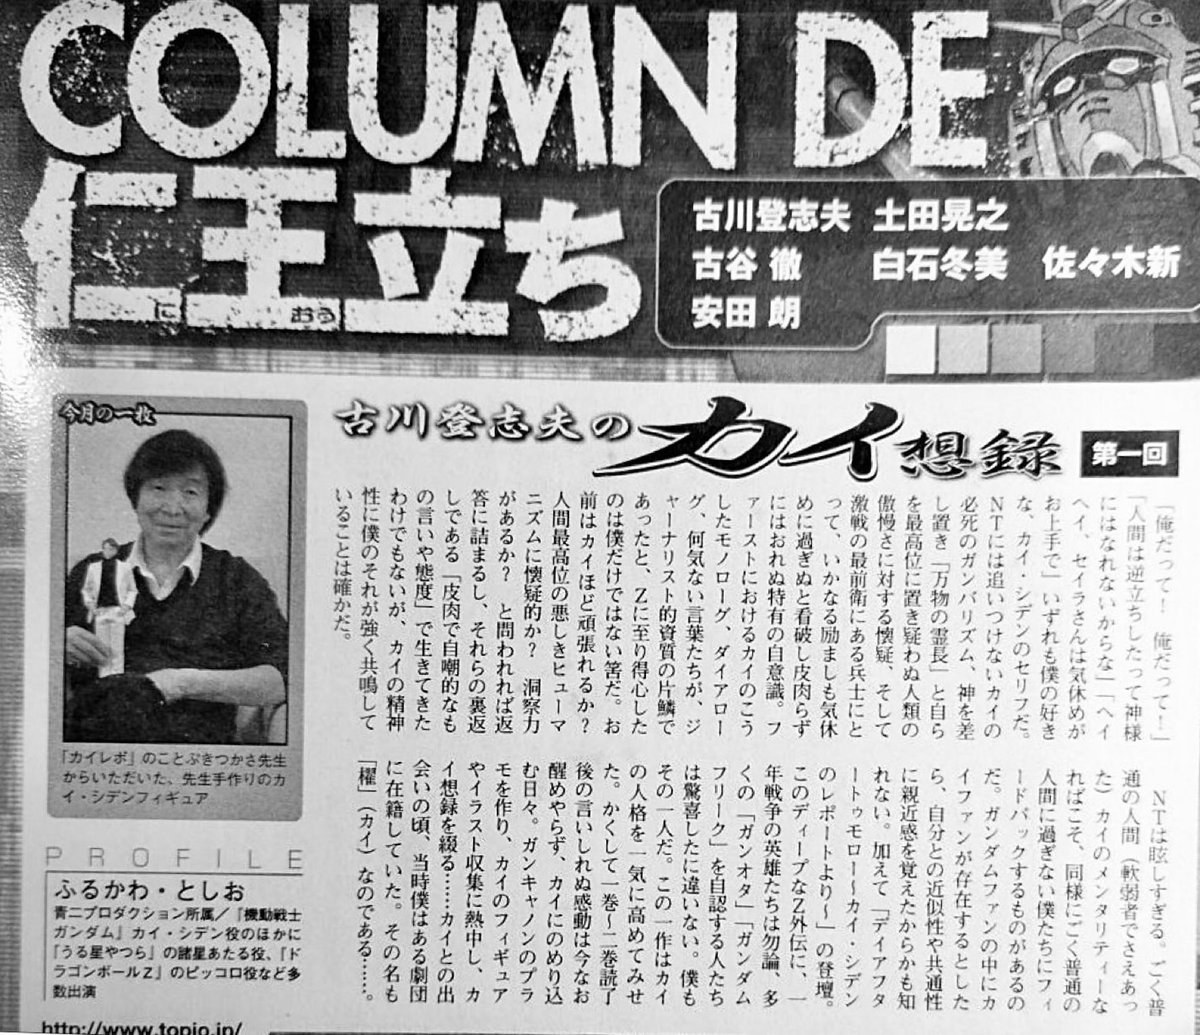 COLUMN DE
仁王立ち
に おう
古川登志夫 土田晃之
古谷 徹 白石冬美 佐々木新
安田 朗
古川登志夫の カイ想録 第一回
今月の一枚
「カイレポ」のことぶきつかさ先生
からいただいた、先生手作りのカ
イ・シデンフィギュア
PROFILE
ふるかわ・としお
青二プロダクション所属/『機動戦士
ガンダム』カイ・シデン役のほかに
『うる星やつら』の諸星あたる役、『ド
ラゴンボールZ』のピッコロ役など多
数出演
http://www.topio.jp/
「俺だって! 俺だって!」
「人間は逆立ちしたって神様
にはなれないからな」「ヘイ
ヘイ、セイラさんは気休めが
お上手で」いずれも僕の好き
な、カイ・シデンのセリフだ。
NTには追いつけないカイの
必死のガンバリズム、神を差
し置き「万物の霊長」と自ら
を最高位に置き疑わぬ人類の
傲慢さに対する懐疑、そして
激戦の最前衛にある兵士にと
って、いかなる励ましも気休
めに過ぎぬと看破し皮肉らず
にはおれぬ特有の自意識。フ
ァーストにおけるカイのこう
したモノローグ、ダイアロー
グ、何気ない言葉たちが、ジ
ャーナリスト的資質の片鱗で
あったと、Zに至り得心した
のは僕だけではない筈だ。お
前はカイほど頑張れるか?
人間最高位の悪しきヒューマ
ニズムに懐疑的か? 洞察力
があるか? と問われれば返
答に詰まるし、それらの裏返
しである「皮肉で自嘲的なも
の言いや態度」で生きてきた
わけでもないが、カイの精神
性に僕のそれが強く共鳴して
いることは確かだ。
NTは眩しすぎる。ごく普
通の人間(軟弱者でさえあっ
た)カイのメンタリティーな
ればこそ、同様にごく普通の
人間に過ぎない僕たちにフィ
ードバックするものがあるの
だ。ガンダムファンの中にカ
イファンが存在するとした
ら、自分との近似性や共通性
に親近感を覚えたからかも知
れない。加えて「デイアフタ
ートゥモロー〜カイ・シデン
のレポートより〜」の登壇。
このディープなZ外伝に、一
年戦争の英雄たちは勿論、多
くの「ガンオタ」「ガンダム
フリーク」を自認する人たち
は驚喜したに違いない。僕も
その一人だ。この一作はカイ
の人格を一気に高めてみせ
た。かくして一巻〜二巻読了
後の言いしれぬ感動は今なお
醒めやらず、カイにのめり込
む日々。ガンキャノンのプラ
モを作り、カイのフィギュア
やイラスト収集に熱中し、カ
イ想録を綴る……カイとの出
会いの頃、当時僕はある劇団
に在籍していた。その名も
「櫂」(カイ)なのである……。